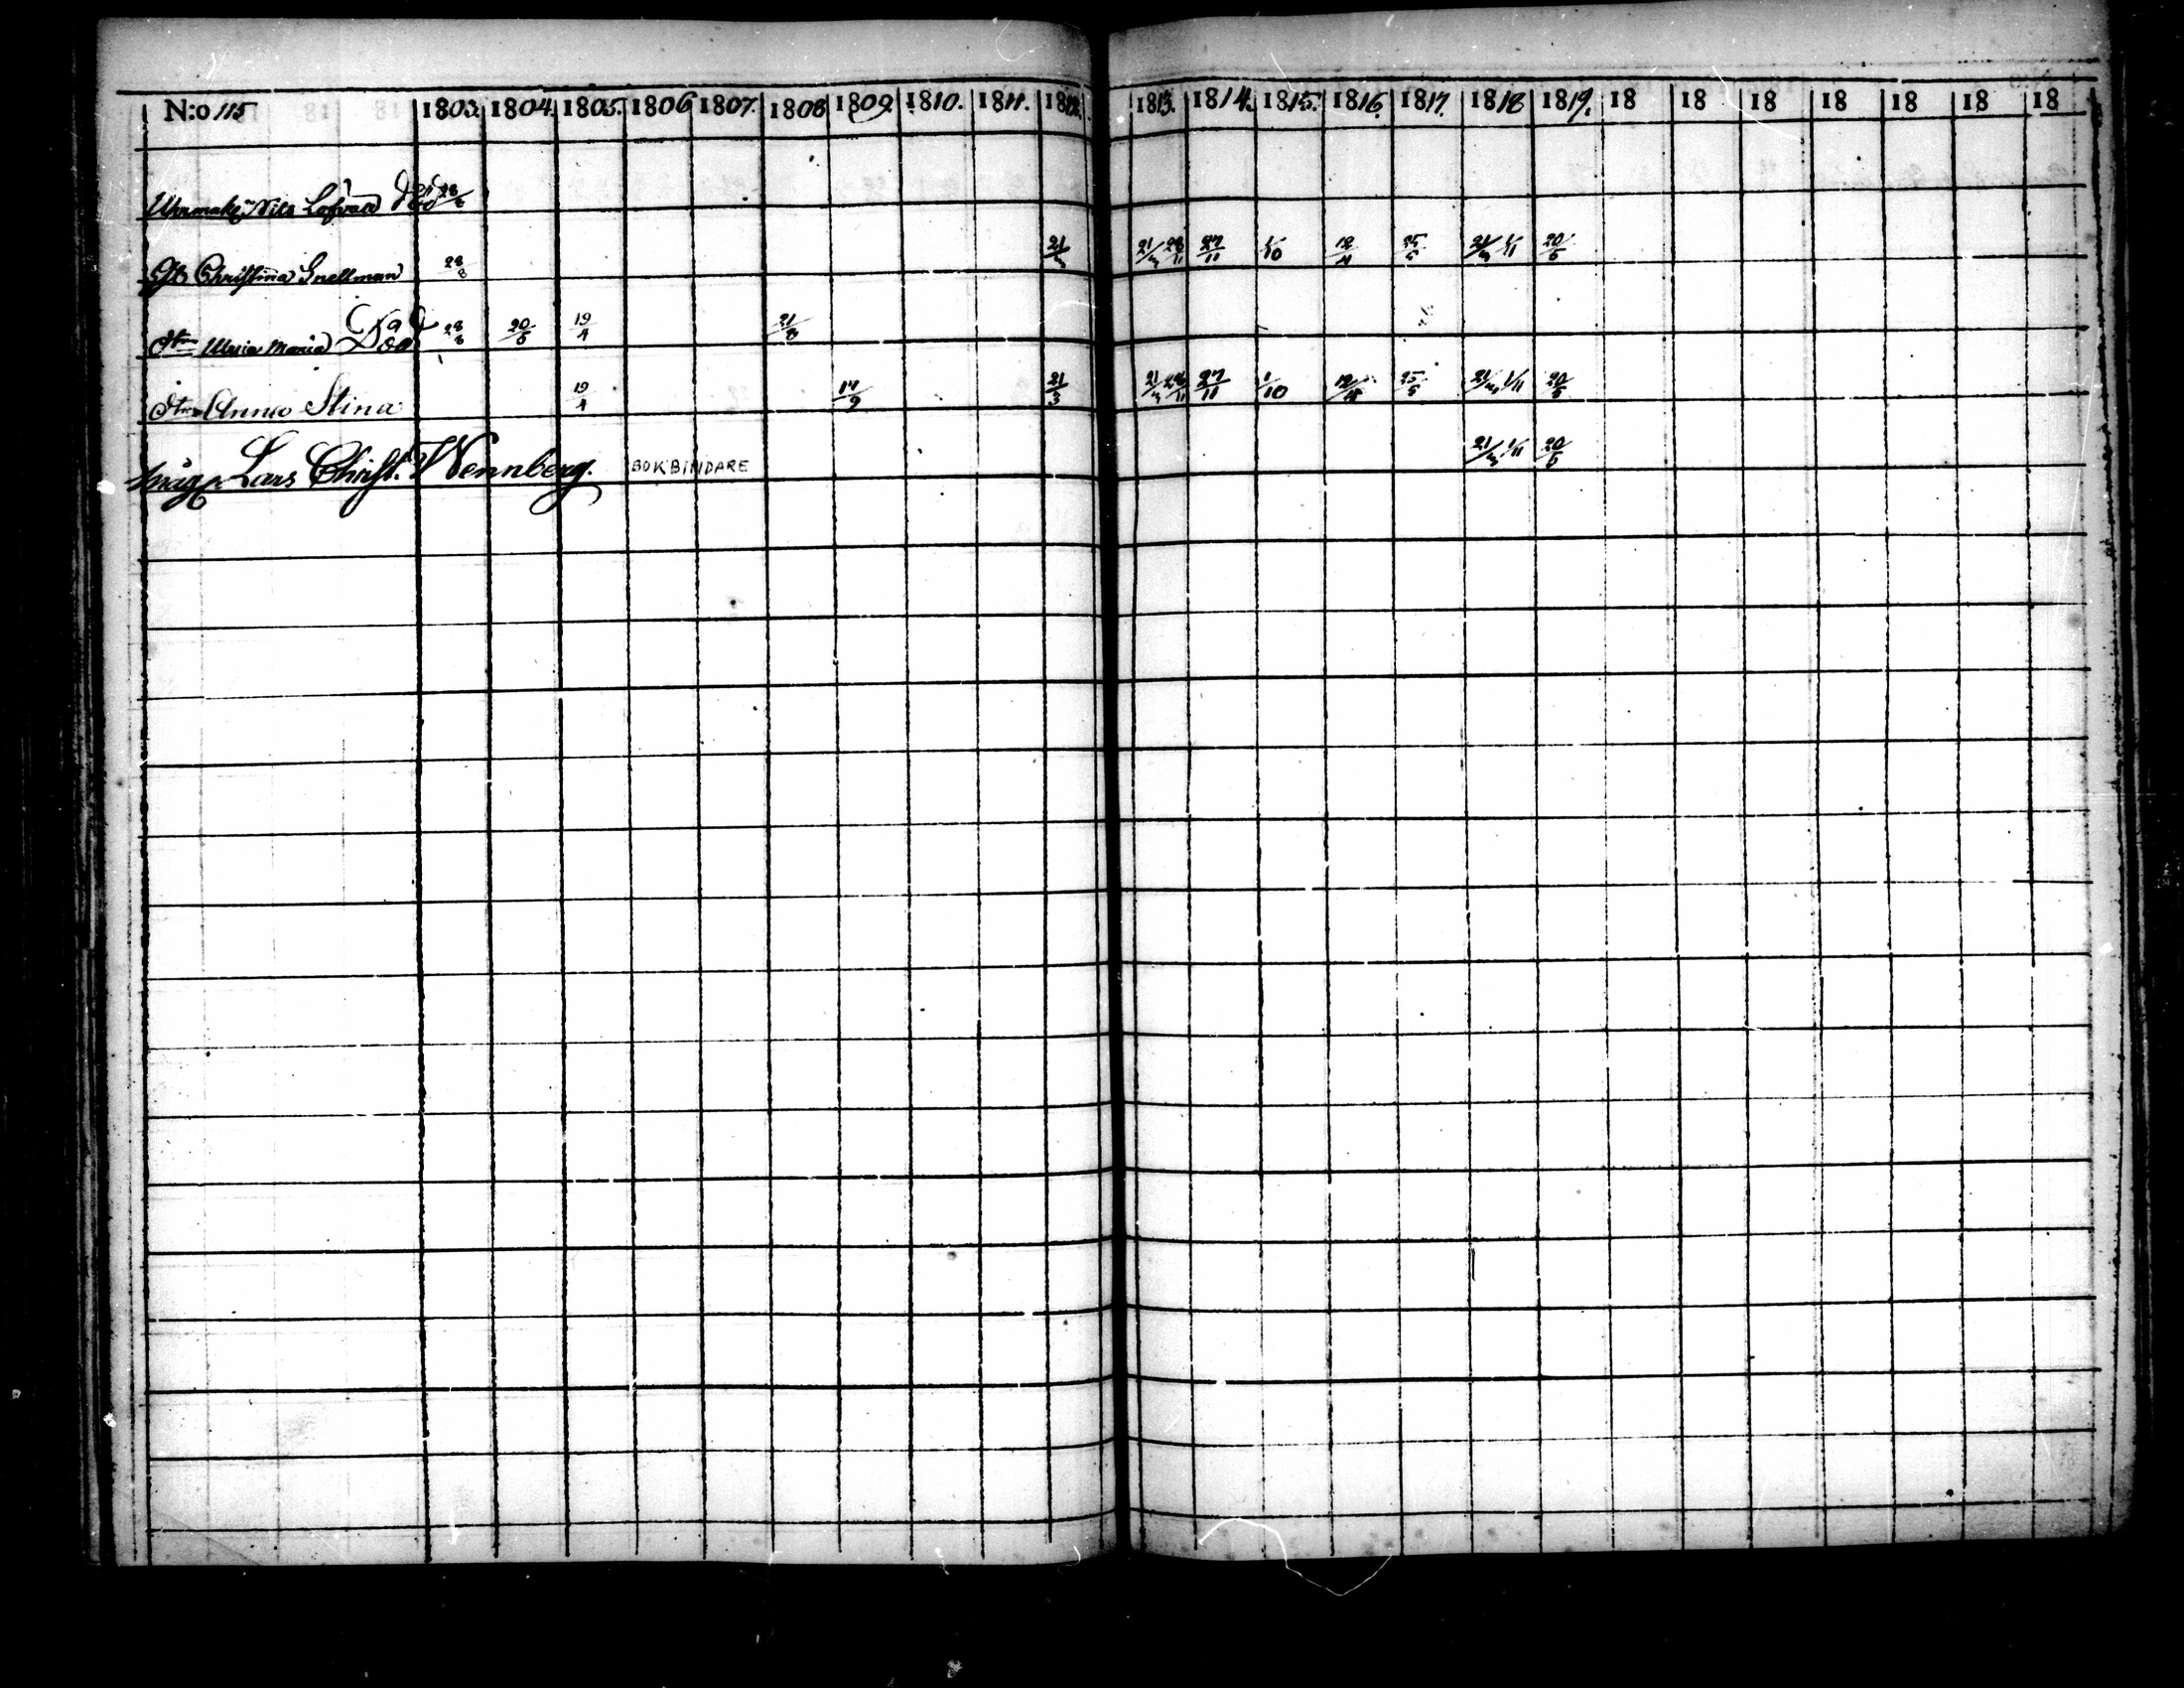 N:o 115 1803. 1804. 1805. 1806 1807. 1808 1809. 1810. 1811. 1812. 1813. 1814. 1815. 1816. 1817. 1818 1819. 18 18 18 18 18 18 18
Uhrmak. Nils död 28/8
Christina Snellman 28/8 21/3 21/3 28/11 27/11 1/10 12/4 25/5 21/3 1/11 20/5
Maria Död 28/8 20/5 19/4 21/8
Anna Stina 19/4 17/9 21/3 21/3 28/11 27/11 1/10 12/4 25/5 21/3 1/11 20/5
måg. Lars Christ. Wennberg. BOKBINDARE 21/3 1/11 20/5